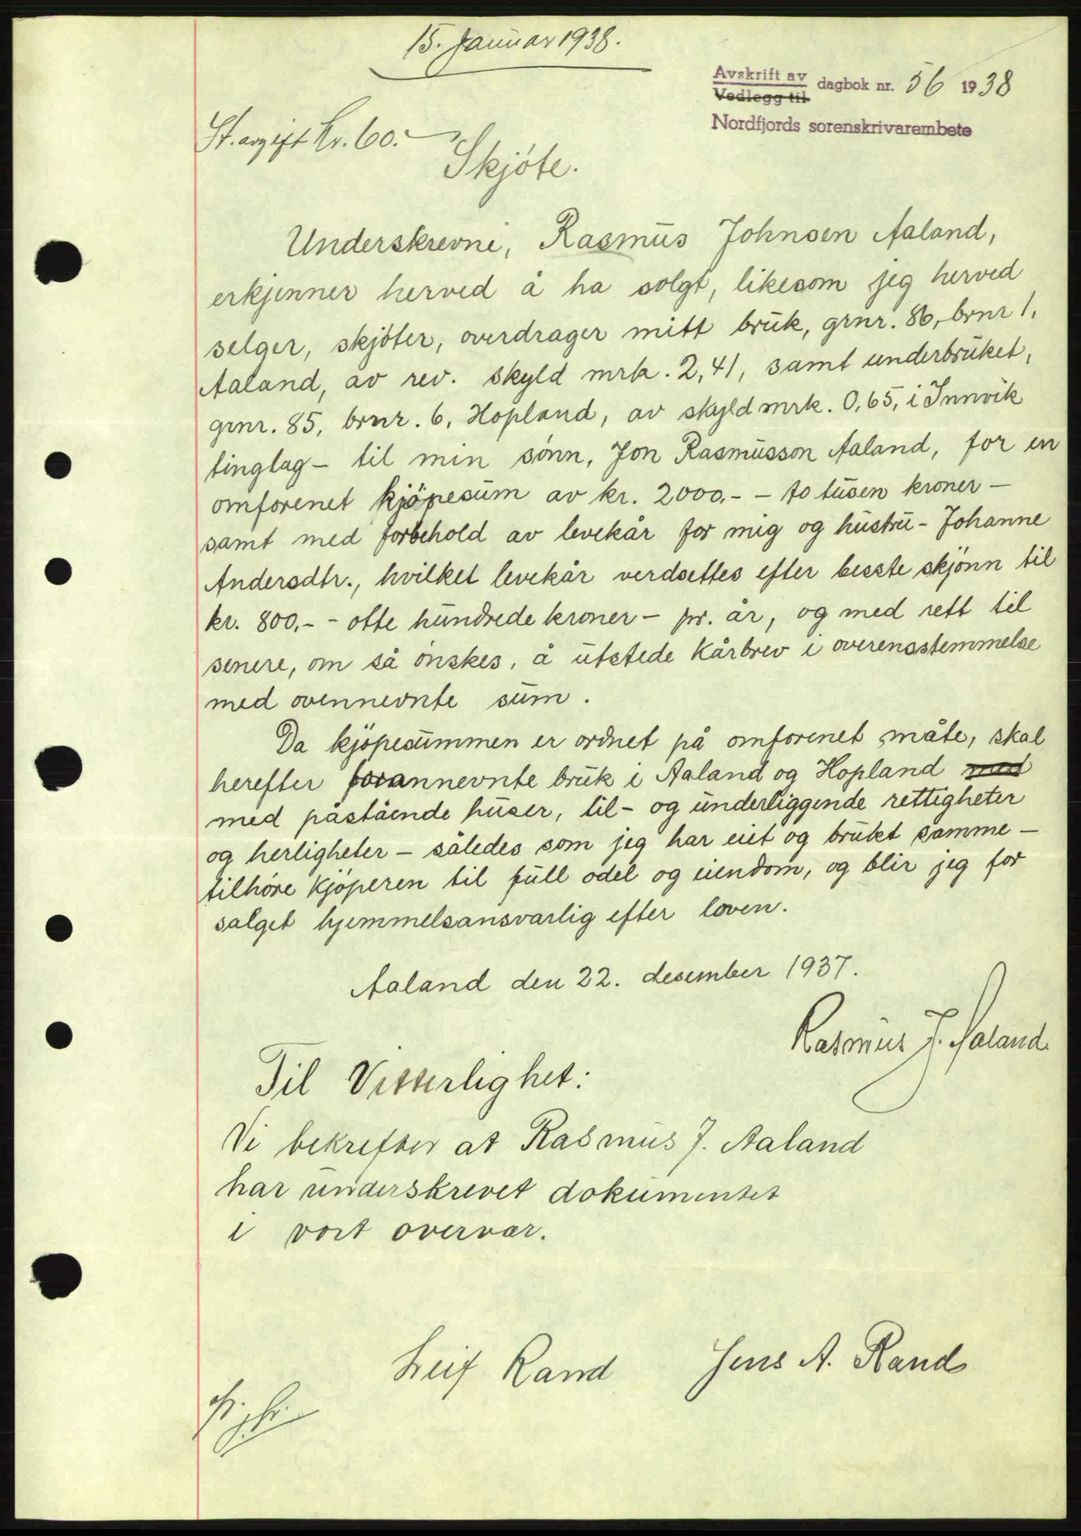 15. Januar 1938.
Avskrift av
Vedlegg til
dagbok nr. 56 1938
Nordfjords sorenskrivarembete
St. avgift kr. 60.-
Skjöte.
Underskrevne, Rasmus Johnsen Aaland,
erkjenner herved å ha solgt, likesom jeg herved
selger, skjöter, overdrager mitt bruk, grnr. 86, brnr 1,
Aaland, av rev. skyld mrk. 2,41, samt underbruket,
grnr. 85, brnr. 6, Hopland, av skyld mrk. 0,65, i Innvik
tinglag - til min sönn, Jon Rasmusson Aaland, for en
omforenet kjöpesum av kr. 2000.- - to tusen kroner -
samt med forbehold av levekår for mig og hustru - Johanne
Andersdtr., hvilket levekår verdsettes efter besste skjönn til
kr. 800.- - otte hundrede kroner - pr. år, og med rett til
senere, om så önskes, å utstede kårbrev i overensstemmelse
med ovennevnte sum.
Da kjöpesummen er ordnet på omforenet måte, skal
herefter forannevnte bruk i Aaland og Hopland med
med påstående huser, til- og underliggende rettigheter
og herligheter - således som jeg har eiet og brukt samme -
tilhöre kjöperen til full odel og eiendom, og blir jeg for
salget hjemmelsansvarlig efter loven.
Aaland den 22. desember 1937.
Rasmus J. Aaland.
Til Vitterlighet:
Vi bekrefter at Rasmus J. Aaland
har underskrevet dokumentet
i vort overvær.
Leif Rand Jens A. Rand